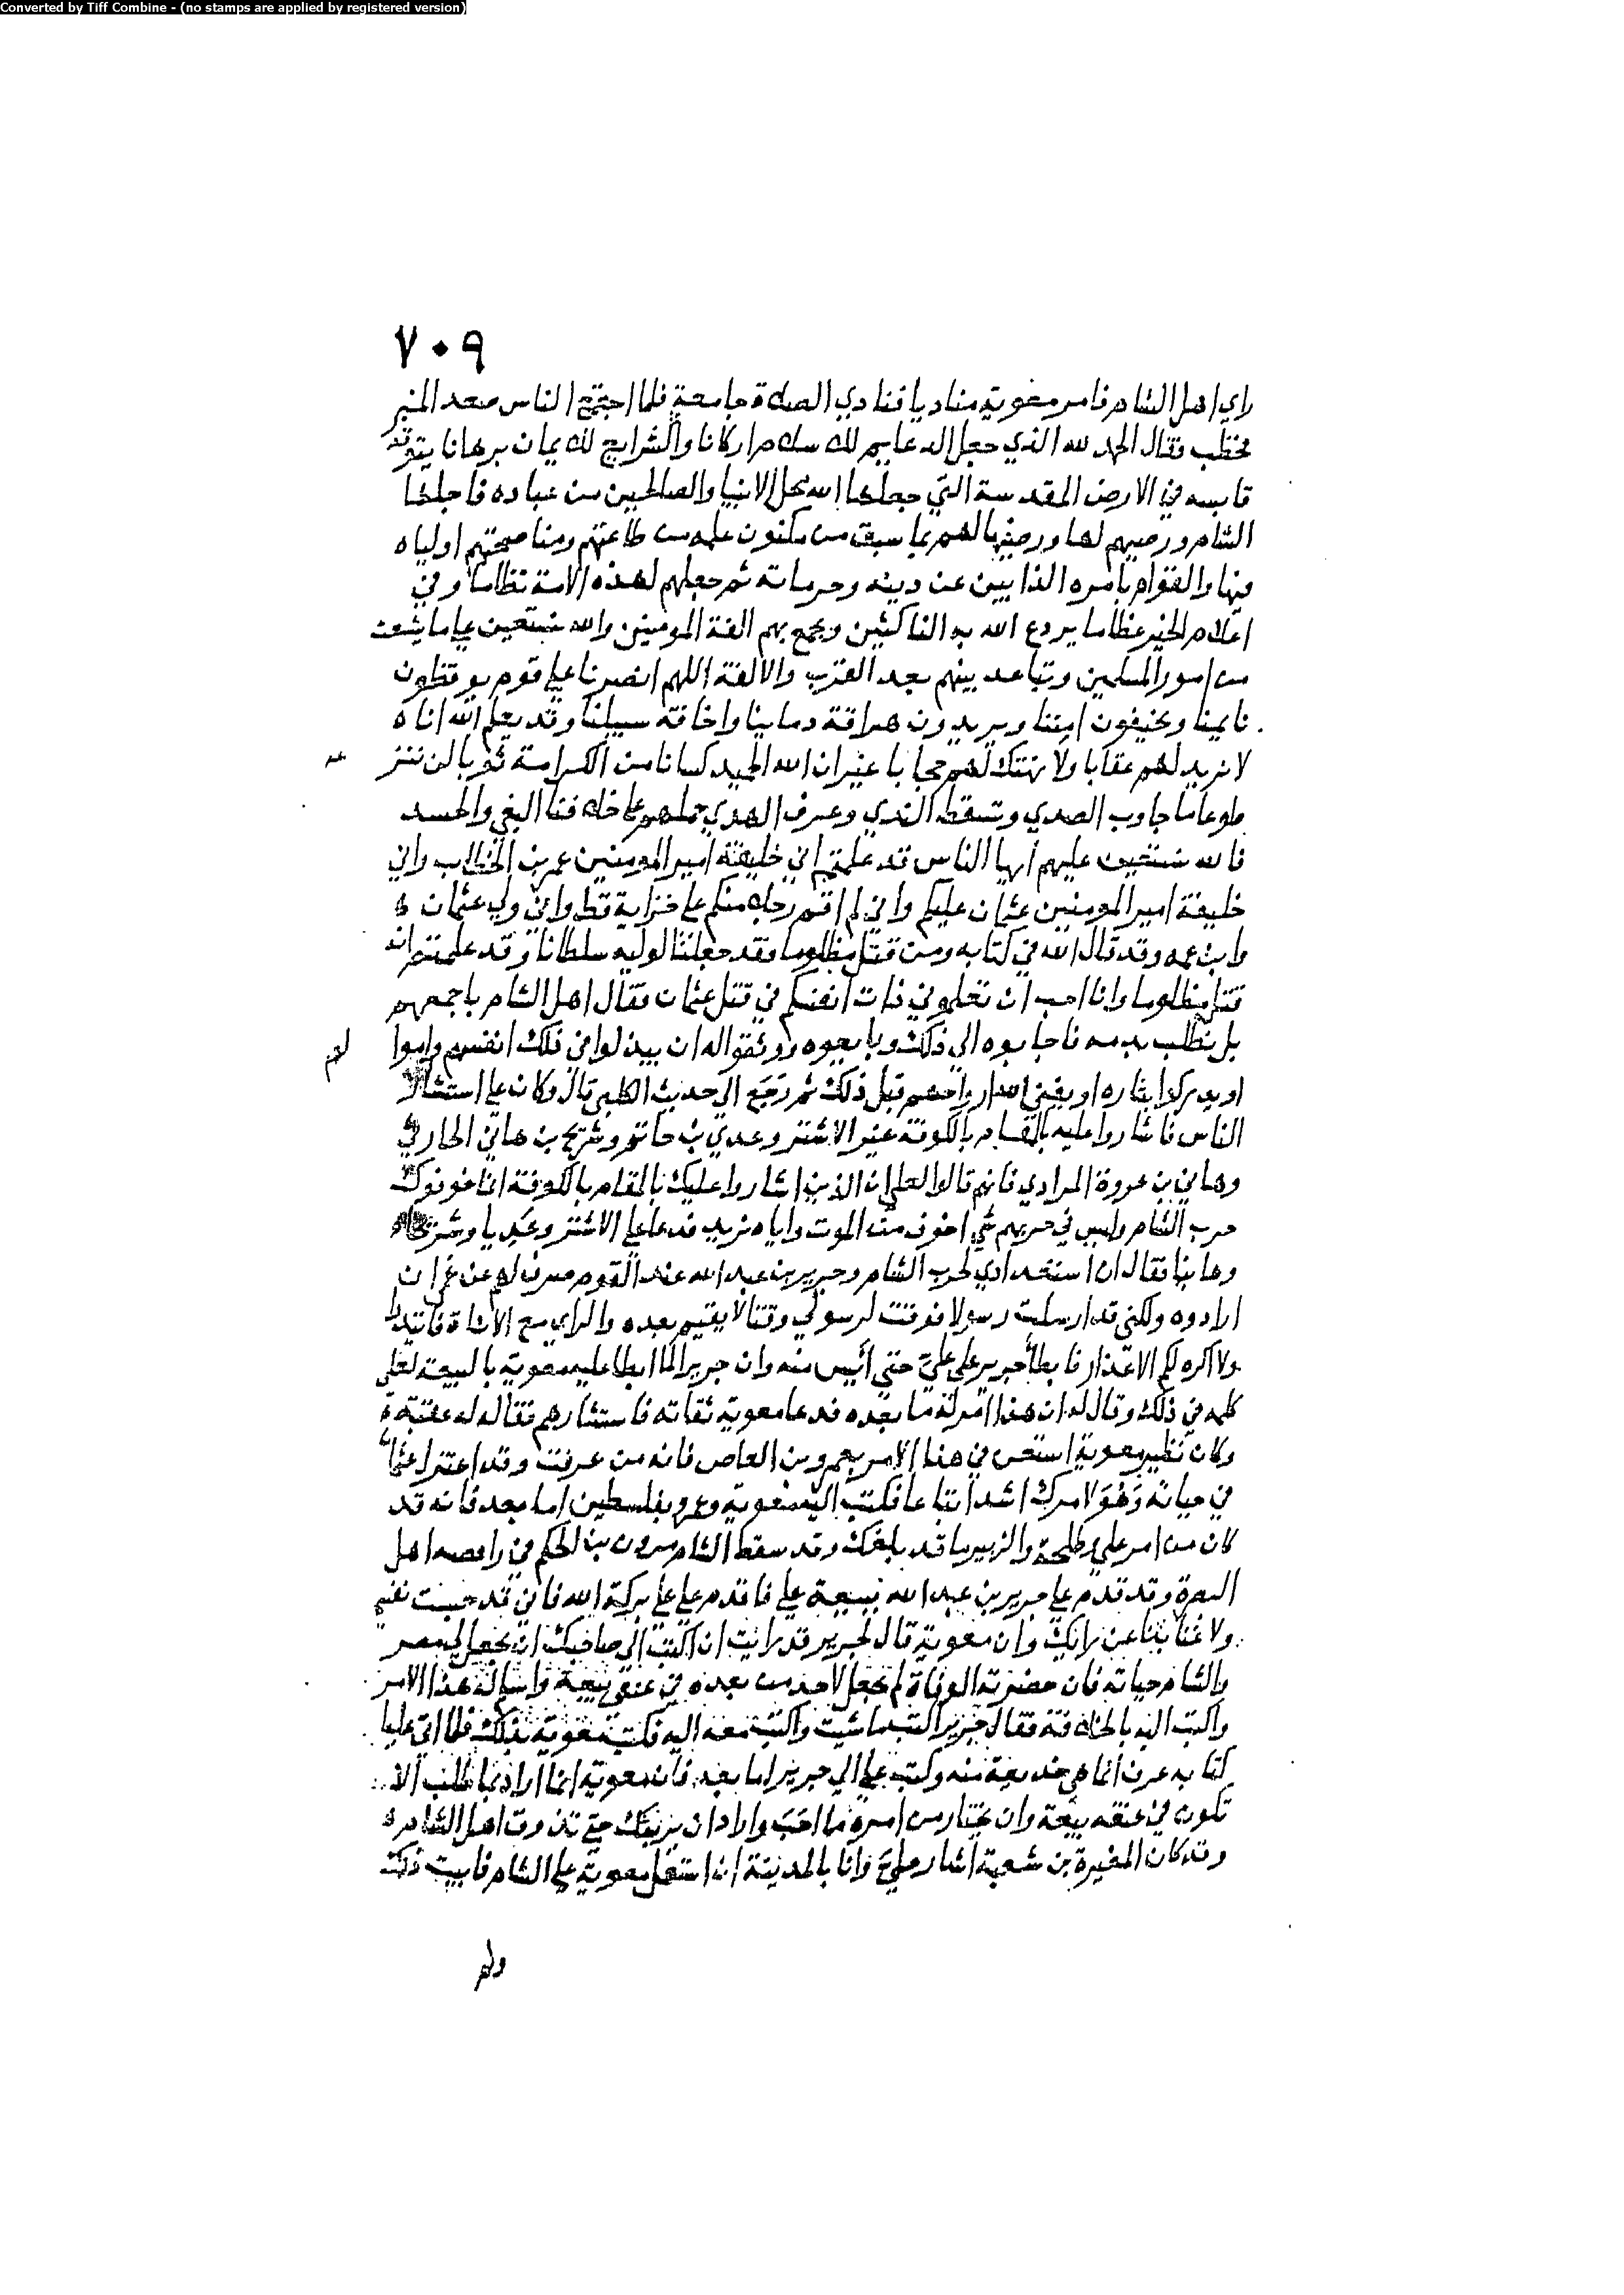 Converted by Tiff Combine - (no stamps are applied by registered version)
٧٠٩
راي اهل الشام فامر معوية مناديا فنادي الصلاة جامعة فلما اجتمع الناس صعد المنبر
فخطب فقال الحمد لله الذي جعل الدعايم للاسلام اركانا والشرايع للايمان برهانا يتوقد
قابسه في الارض المقدسة التي جعلها الله محل الانبيا والصالحين من عباده فاحلها
الشام ورضيهم لها ورضيها لهم بما سبق من مكنون علمه من طاعتهم ومناصحتهم اولياه
فيها والقوام بامره الذابين عن دينه وحرماته ثم جعلهم لهذه الامة نظاما وفي
اعلام الخير عظاما يردع الله به الناكثين ويجمع بهم الفة المومنين والله نستعين علي ما يشعث
من امور المسلمين وتباعد بينهم بعد القرب والالفة اللهم انصرنا علي قوم يوقظون
نايمنا ويخيفون امننا ويريدون هراقة دماينا واخافة سبيلنا وقد يعلم الله انا ه
لا نريد لهم عقابا ولا نهتك لهم حجابا غير ان الله الحميد كسانا من الكرامة ثوبا لن ننز
عه
طوعا ما جاوب الصدي وسقط الندي وعرف الهدي حملهم علي خلافنا البغي والحسد
فالله نستعين عليهم ايها الناس قد علمتم اني خليفة امير المومنين عمر بن الخطاب واني
خليفة امير المومنين عثمان عليكم واني لم اقم رجلا منكم علي خزاية قط واني ولي عثمان ه
وابن عمه وقد قال الله في كتابه ومن قتل مظلوما فقد جعلنا لوليه سلطانا وقد علمتم انه
قتل مظلوما وانا احب ان تعلموني ذات انفسكم في قتل عثمان فقال اهل الشام باجمعهم
بل نطلب بدمه فاجابوه الي ذلك وبايعوه ووثقوا له ان يبذلوا في ذلك انفسهم واموا
لهم
او يدركوا بثاره او يفني الله ارواحهم قبل ذلك ثم رجع الي حديث الكلبي قال وكان علي استشار
الناس فاشاروا عليه بالمقام بالكوفة غير الاشتر وعدي بن حاتم وشريح بن هاني الحارثي
وهاني بن عروة المرادي فانهم قالوا لعلي ان الذين اشاروا عليك بالمقام بالكوفة انما خوفوك
حرب الشام وليس في حربهم شي اخوف من الموت واياه نريد فدعا علي الاشتر وعديا وشريحا
وهانيا فقال ان استعدادي لحرب الشام وجرير بن عبد الله عند القوم صرف لهم عن خير ان
ارادوه ولكني قد ارسلت رسولا فوقت لرسولي وقتا لا يقيم بعده والراي مع الاناة فاتيدوا
ولا اكره لكم الاعذار فابطأ جرير علي علي حتي ائيس منه وان جريرا لما ابطا عليه معوية بالبيعة لعلي
كلمه في ذلك وقال له ان هذا امر له ما بعده فدعا معوية ثقاته فاستشارهم فقال له عتبة ه
وكان نظير معوية استعن في هذا الامر بعمرو بن العاص فانه من عرفت وقد اعتزل عثمان
في حياته وهو لامرك اشد اتباعا فكتب اليه معوية وعمرو بفلسطين اما بعد فانه قد
كان من امر علي وطلحة والزبير ما قد بلغك وقد سقط الشام مروان بن الحكم في رافضة اهل
البصرة وقد قدم علي جرير بن عبد الله ببيعة علي فاقدم علي علي بركة الله فاني قد حبست نفسي
ولا غنا بنا عن رايك وان معوية قال لجرير قد رايت ان اكتب الي صاحبك ان يجعل لي مصر
والشام حياته فان حضرته الوفاة لم يجعل لاحد من بعده في عنقي بيعة واسلم له هذا الامر
واكتب اليه بالخلافة فقال جرير اكتب ما شيت واكتب معه اليه فكتب معوية بذلك فلما اتي عليا
كتابه عرف انما هي خديعة منه وكتب علي الي جرير اما بعد فان معوية انما اراد بما طلب الا
تكون في عنقه بيعة وان يختار من امره ما احب واراد ان يريثك حتي تذوق اهل الشام ه
وقد كان المغيرة بن شعبة اشار علي وانا بالمدينة ان استعمل معوية علي الشام فابيت ذلك
ولم